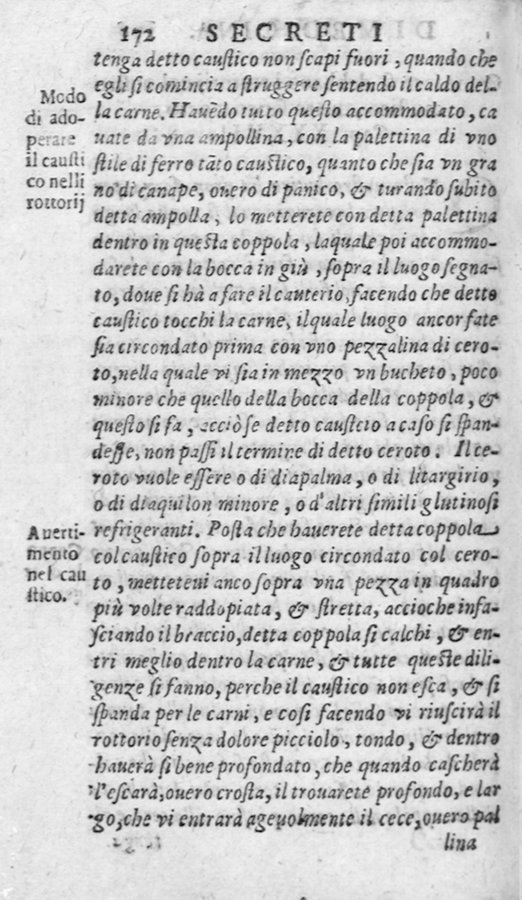 172 SECRETI
tenga detto caustico non scapi fuori, quando che
egli si comincia a struggere sentendo il caldo del-
la carne. Hauẽdo tutto questo accommodato, ca
uate da vna ampollina, con la palettina di vno
stile di ferro tãto caustico, quanto che sia vn gra
no di canape, ouero di panico, & turando subito
detta ampolla, lo metterete con detta palettina
dentro in questa coppola, laquale poi accommo-
darete con la bocca in giù, sopra il luogo segna-
to, doue si hà a fare il cauterio, facendo che detto
caustico tocchi la carne, ilquale luogo ancor fate
sia circondato prima con vno pezzalina di cero-
to, nella quale vi sia in mezzo vn bucheto, poco
minore che quello della bocca della coppola, &
questo si fa, acciò se detto caustcio a caso si span-
desse, non passi il termine di detto ceroto. Il ce-
roto vuole essere o di diapalma, o di litargirio,
o di diaquilon minore, o d'altri simili glutinosi
refrigeranti. Posta che hauerete detta coppola
col caustico sopra il luogo circondato col cero-
to, metteteui anco sopra vna pezza in quadro
più volte raddopiata, & stretta, accioche infa-
sciando il braccio, detta coppola si calchi, & en-
tri meglio dentro la carne, & tutte queste dili-
genze si fanno, perche il caustico non esca, & si
spanda per le carni, e cosi facendo vi riuscirà il
rottorio senza dolore picciolo, tondo, & dentro
hauerà si bene profondato, che quando cascherà
l'escarà, ouero crosta, il trouarete profondo, e lar
go, che vi entrarà ageuolmente il cece, ouero pal
lina
Modo
di ado-
perare
il causti
co nelli
rottorij
Auerti-
mento
nel cau
stico.